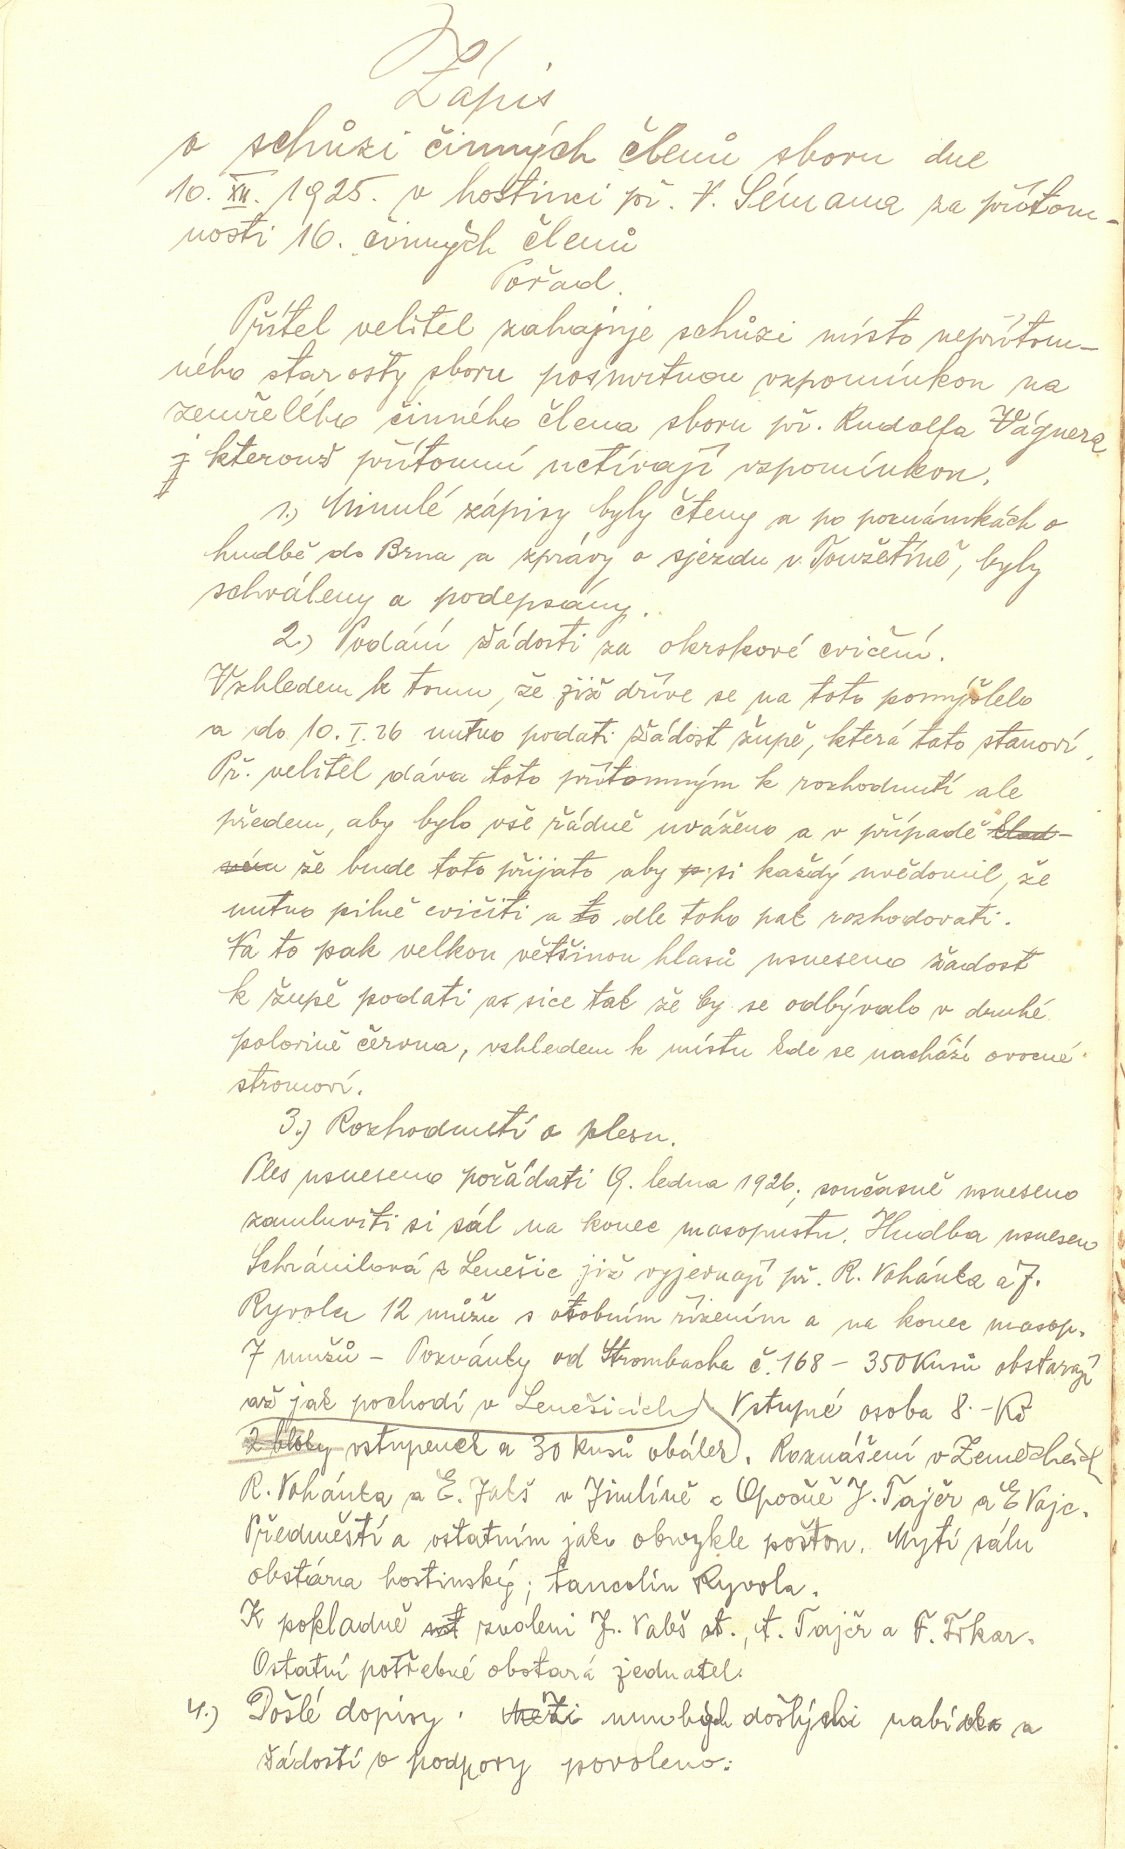 Zápis
o schůzi činných členů sboru dne
10. XII. 1925. v hostinci př. V. Sémana za přítom-
nosti 16. činných členů
Pořad.
Přítel velitel zahajuje schůzi místo nepřítom-
ného starosty sboru posmrtnou vzpomínkou na
zemřelého činného člena sboru př. Rudolfa Vágnera
j kterouž přítomní uctívají vzpomínkou.
1.) Minulé zápisy byly čteny a po poznámkách o
hudbě do Brna a zprávy o sjezdu v Toužetíně, byly
schváleny a podepsány.
2.) Podání žádosti za okrskové cvičení.
Vzhledem k tomu, že již dříve se na toto pomýšlelo
a do 10. I. 26 nutno podati žádost župě, která toto stanoví,
Př. velitel dáva toto přítomným k rozhodnutí ale
předem, aby bylo vše řádně uváženo a v případě
že bude toto přijato aby si každý uvědomil, že
nutno pilně cvičiti a to dle toho pak rozhodovati.
Na to pak velkou většinou hlasů usneseno žádost
k župě podati a sice tak že by se odbývalo v druhé
polovině června, vzhledem k místu kde se nachází ovocné
stromoví.
3.) Rozhodnutí o plesu.
Ples usneseno pořádati 9. ledna 1926; současně usneseno
zamluviti si sál na konec masopustu. Hudba usneseno
Schránilová z Lenešic již vyjednají př. R. Vohánka a J.
Ryvola 12 mužů s osobním řízením a na konec masop.
7 mužů – Pozvánky od Strombacha č. 168 – 350 Kusů obstarají
až jak pochodí v Lenešicích Vstupné osoba 8.- Kč
2 bloky vstupenek a 30 kusů obálek. Roznášení v Zeměchách
R. Vohánka a E. Jakš v Jimlíně a Opočně J. Tajčr a E Vajc.
Předměstí a ostatním jako obvykle poštou. Mytí sálu
obstárá hostinský; tancolín Ryvola.
K pokladně zvoleni J. Valeš st., A. Tajčr a F. Trkar.
Ostatní potřebné obstará jednatel.
4.) Došlé dopisy. Mezi mnohých došlých nabídek a
žádostí o podpory povoleno: